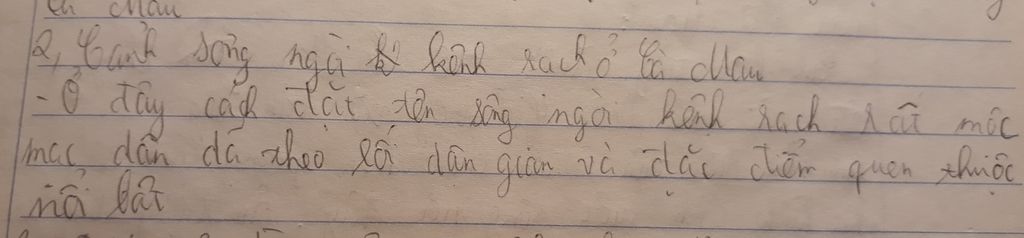 Cà Mau
2, Cảnh sông ngài kênh rạch ở Cà Mau
- Ở đây cách đặt tên sông ngòi kênh rạch rất mộc
mạc dân dã theo lối dân gian và đặc điểm quen thuộc
nổi bật